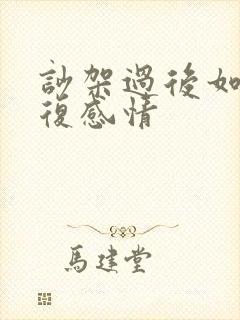 訬架過後如
復感情
馬建堂